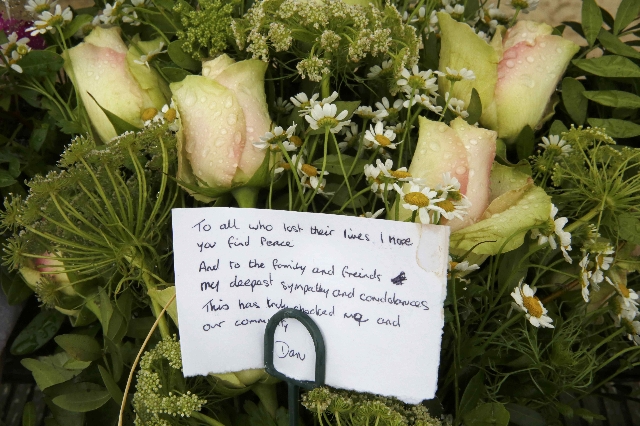 To all who lost their lives I hope
you find Peace
And to the family and freinds
my deepest sympathy and condolances
This has truly shocked me and
our community
Dan